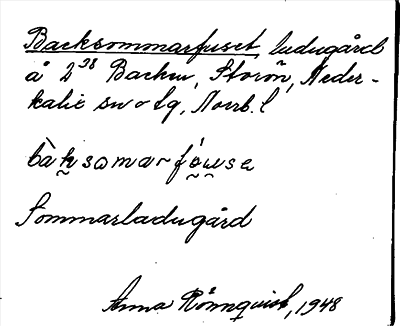 Backsommarfuset, ladugård
å 2³⁸ Backen, Storön, Neder-
kalix sn o tg, Norrb. l
bàksomarfóuse
Sommarladugård
Anna Rönnquist, 1948